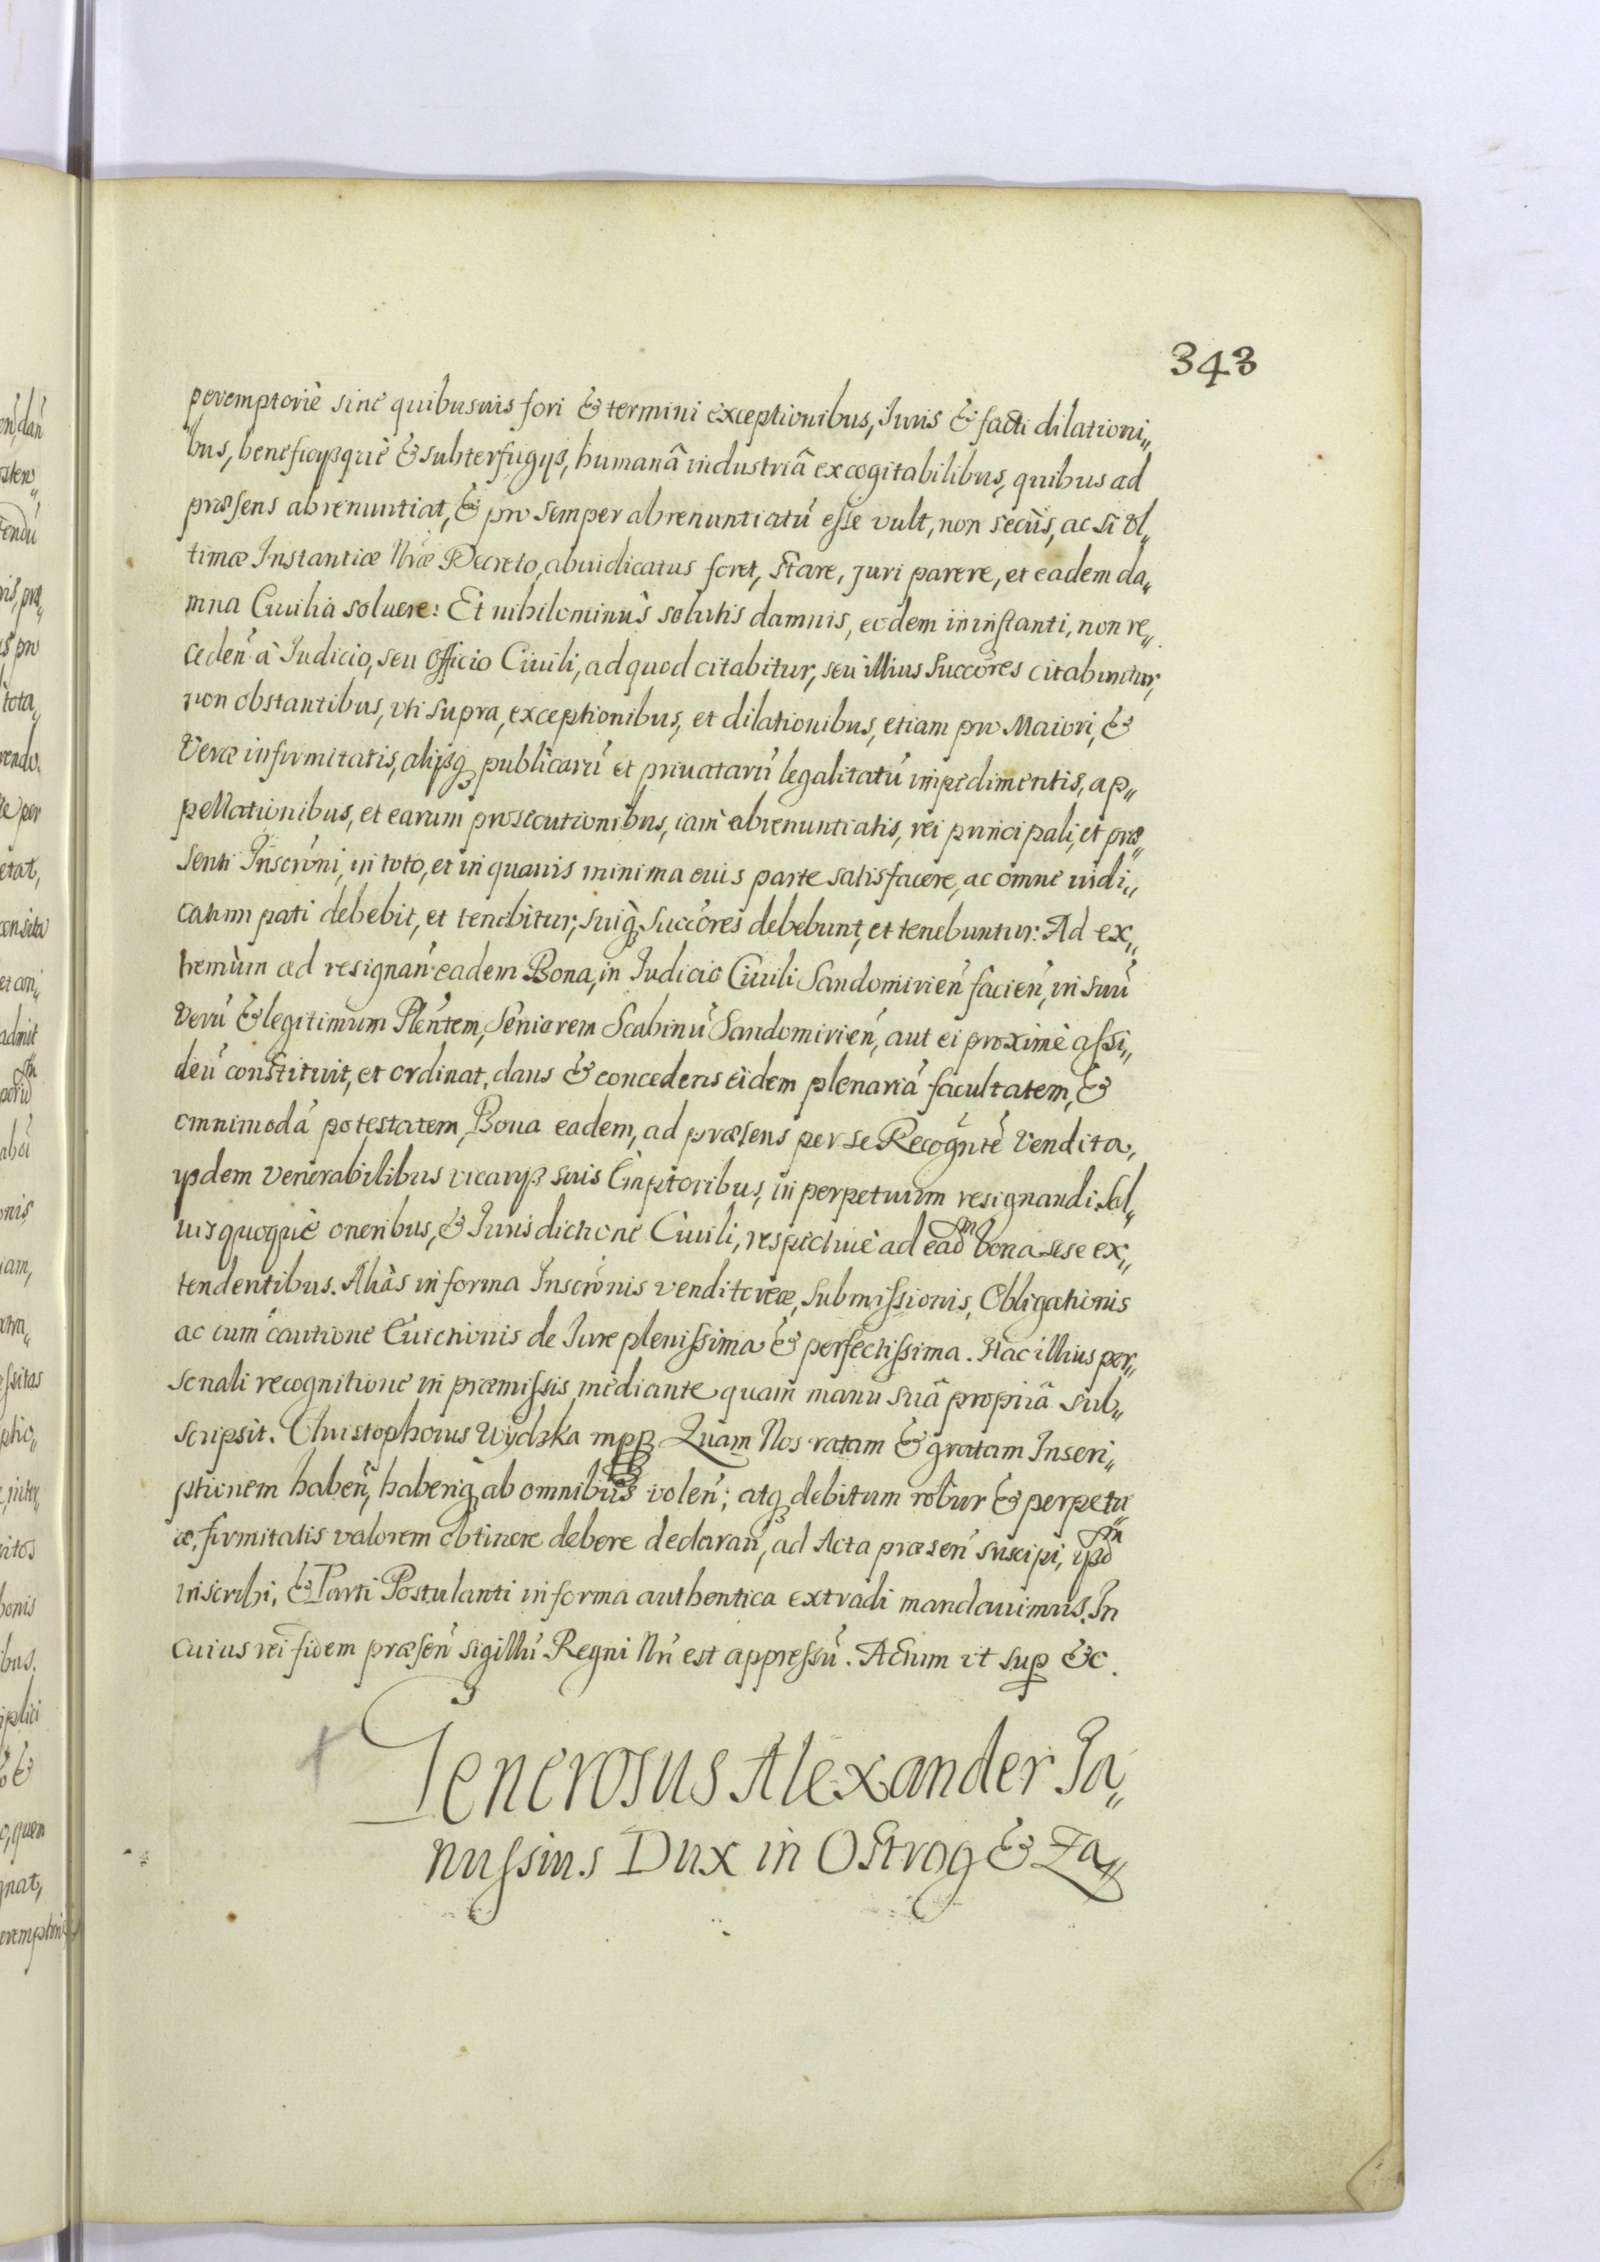 343
peremptoriè sine quibusuis fori & termini exceptionibus, Iuris & facti dilationi„
bus, beneficijsquè & subterfugijs, humanâ industriâ excogitabilibus, quibus ad
præsens abrenuntiat, & pro semper abrenuntiatũ esse vult, non secùs, ac si Vl„
timæ Instantiæ Nræ Decreto, abiudicatus foret, stare, juri parere, et eadem da„
mna Ciuilia soluere: Et nihilominùs solutis damnis, eodem in instanti, non re„
ceden̄ à Iudicio, seu Officio Ciuili, ad quod citabitur, seu illius Succōres citabuntur,
non obstantibus, vti supra, exceptionibus, et dilationibus, etiam pro Maiori, &
Veræ infirmitatis, alijsq̃ publicarũ et priuatarũ legalitatũ impedimentis, ap„
pellationibus, et earum prosecutionibus, iam abrenuntiatis, rei principali, et præ„
senti Inscrōni, in toto, et in quauis minima euis parte satisfacere, ac omne iudi„
catum pati debebit, et tenebitur, suiq̃ Succōres debebunt, et tenebuntur. Ad ex„
tremùm ad resignan̄ eadem Bona, in Iudicio Ciuili Sandomirien̄ facien̄, in suũ
Verũ & legitimum Plēntem, Seniorem Scabinũ Sandomirien̄, aut ei proximè assi„
den̄ constituit, et ordinat, dans & concedens eidem plenariã facultatem, &
omnimodã potestatem, Bona eadem, ad præsens per se Recogn̄tẽ Vendita,
ijsdem Venerabilibus vicarijs suis Emptoribus, in perpetuum resignandi. Sal„
uis quoquè oneribus, & Iurisdictione Ciuili, respectiuè ad eadm bona sese ex„
tendentibus. Aliàs in forma Inscrōnis venditoriæ, submissionis, Obligationis
ac cum cautione Euictionis de Iure plenissima & perfectissima. Hac illius per„
sonali recognitione in præmissis mediante quam manu suâ propriâ sub„
scripsit. Christophorus Wydzka mpp Quam Nos ratam & gratam Inscri„
ptionem haben̄, haberiq̃ ab omnibus volen̄, atq̃ debitum robur & perpetu„
æ, firmitatis valorem obtinere debere declaran̄, ad Acta præsen̄ suscipi, ijsdm
inscribi, & Parti Postulanti in forma authentica extradi mandauimus. In
cuius rei fidem præsen̄ sigillũ Regni Nr̃i est appressũ. Actum ut sup &c.
Generosus Alexander Ja„
nussius Dux in Ostrog & Za„